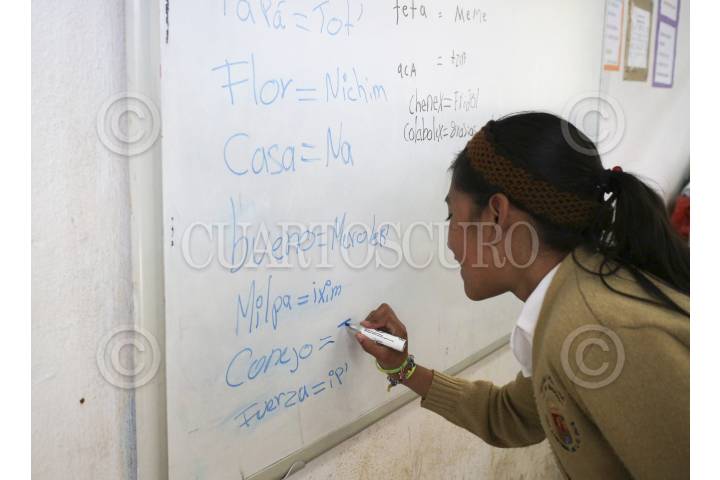 Papá = Tot'
Flor = Nichim
Casa = Na
bueno =
Milpa = ixim
Conejo = T
Fuerza = ip'
teta = Meme
acá = tzm
Chenex = Frijol
Colabolex =
© CUARTOSCURO ©